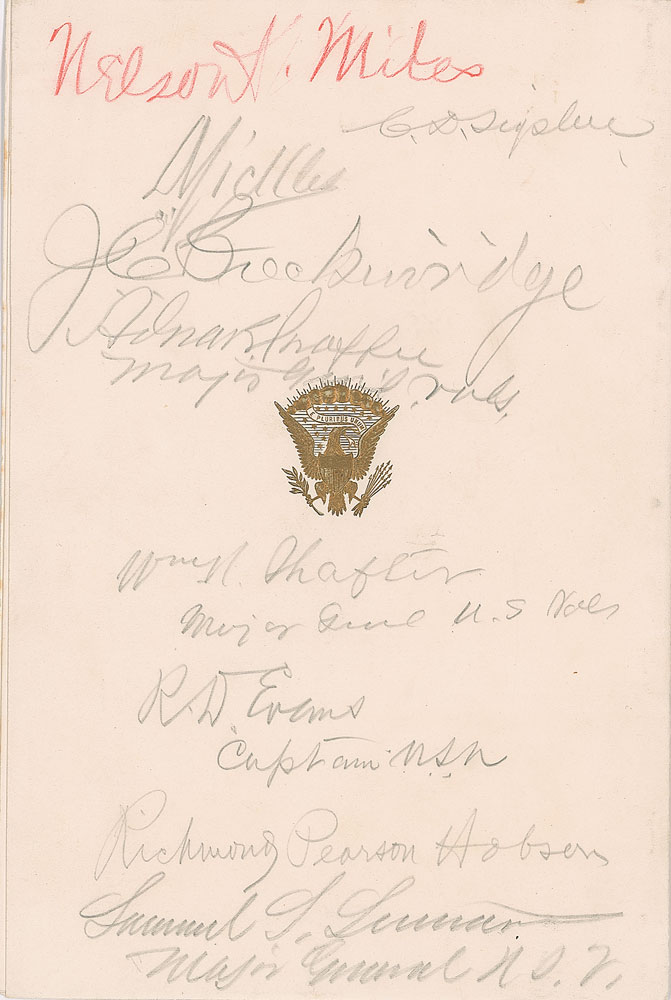 Nelson A. Miles
C. D. Sigsbee
J C Breckinridge
Adna R Chaffee
Major Gen'l Vols.
E PLURIBUS UNUM
Wm R. Shafter
Major Genl U.S Vols
R. D. Evans
Captain USN
Richmond Pearson Hobson
Samuel S. Sumner
Major General U.S.V.